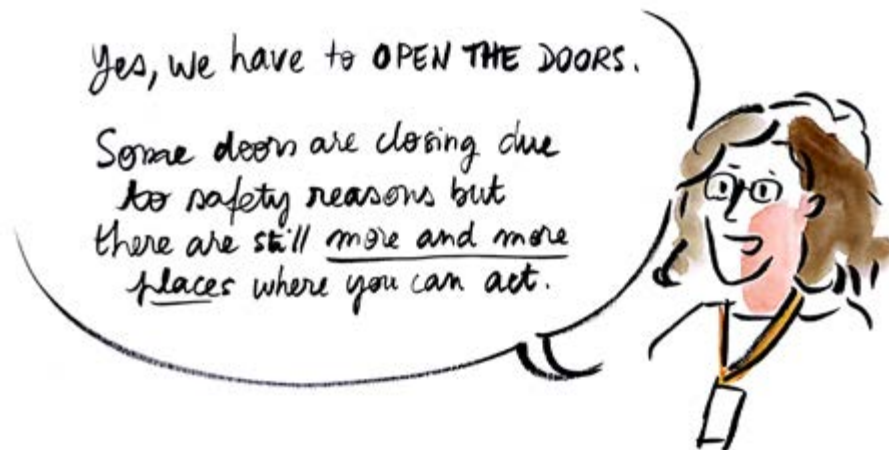 Yes, we have to OPEN THE DOORS.
Some doors are closing due
to safety reasons but
there are still more and more
places where you can act.